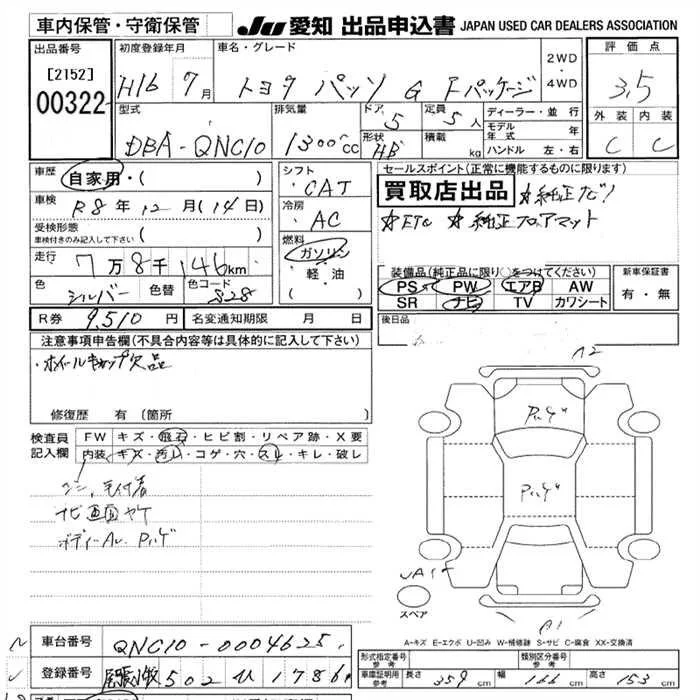 車内保管・守衛保管 JU 愛知 出品申込書 JAPAN USED CAR DEALERS ASSOCIATION
出品番号 初度登録年月 車名・グレード 2WD ・ 4WD 評価点
[2152] 00322 H16 7月 トヨタ パッソ G Fパッケージ 3,5
型式 排気量 ドア 定員 ディーラー・並行 外装 内装
DBA-QNC10 1300cc 5 5人 モデル年式 年 C C
形状 HB 積載 kg ハンドル 左・右
車歴 自家用・( ) シフト CAT セールスポイント(正常に機能するものに限ります)
車検 R8年12月(14日) 冷房 AC 買取店出品 ☆純正ナビ
受検形態 車検付きのみ記入して下さい ( ) ☆ETC ☆純正フロアマット
走行 7万8千146km 燃料 ガソリン・軽油 装備品(純正品に限り○をつけてください) 新車保証書
色 シルバー 色替 色コード S28 PS PW エアB AW 有・無
SR ナビ TV カワシート
R券 9,510円 名変通知期限 月 日 後日品
注意事項申告欄(不具合内容等は具体的に記入して下さい)
・ホイールキャップ欠品
修復歴 有(箇所 )
検査員記入欄 FW キズ・飛石・ヒビ割・リペア跡・X要
内装 キズ・汚レ・コゲ・穴・スレ・キレ・破レ
ナビ画面ヤケ
A2
A1
スペア
A-キズ E-エクボ U-凹み W-補修跡 S-サビ C-腐食 XX-交換済
車台番号 QNC10-0004625
登録番号 502 ひ 1786
形式指定番号 参考 類別区分番号 参考
車庫証明用 参考 長さ 359cm 幅 166cm 高さ 153cm